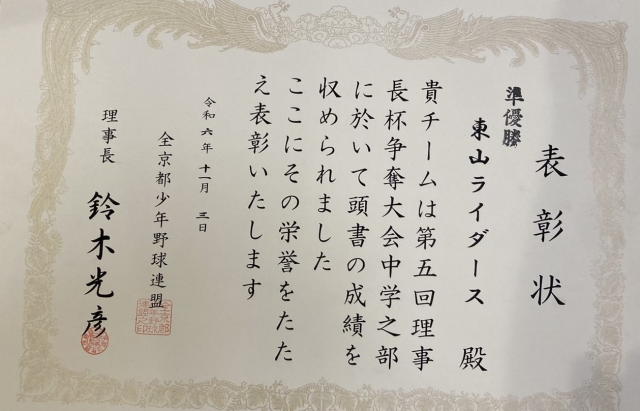 表彰状
準優勝
東山ライダース 殿
貴チームは第五回理事
長杯争奪大会中学之部
に於いて頭書の成績を
収められました
ここにその栄誉をたた
え表彰いたします
令和六年十一月三日
全京都少年野球連盟
理事長 鈴木光彦